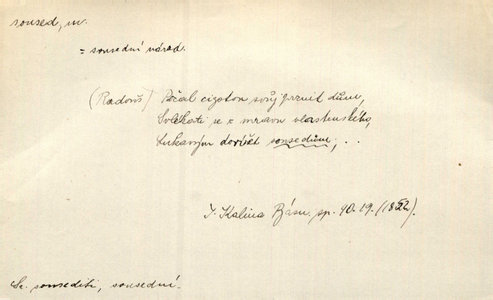 soused, m.
= sousední národ.
(Radouš) Počal cizotou svůj prznit dům,
Svlékati se z mravu vlastenského,
Lukavým dověřět sousedům, ..
J. Kalina Básn. sp. 90. 19. (1852).
Sr. sousediti, sousední.